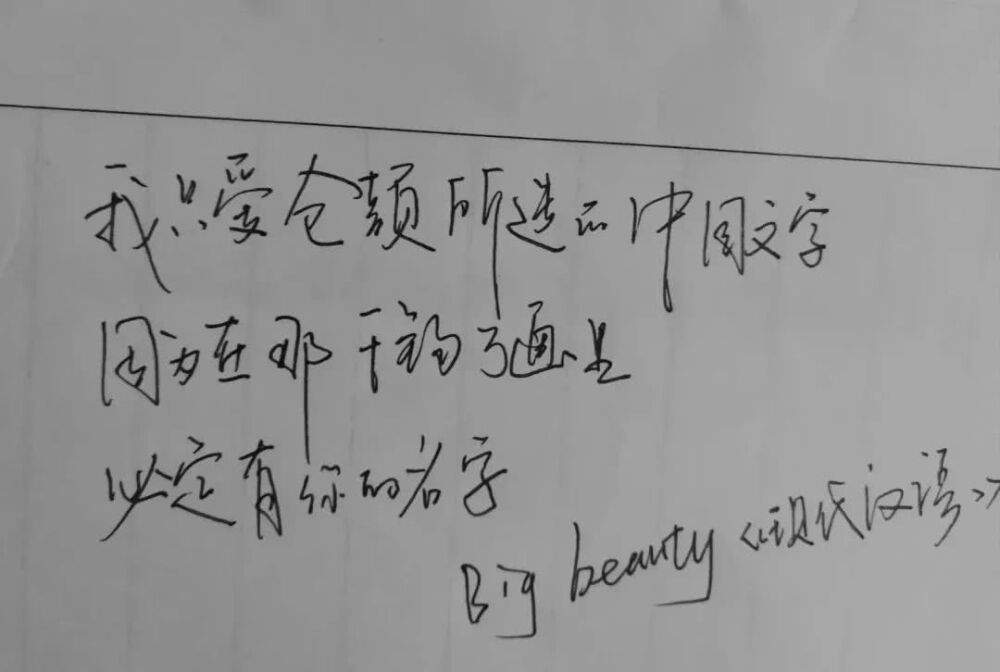 我只爱仓颉所造的中国文字
因为在那千钩弓画里
必定有你的名字
Big beauty《现代汉语》